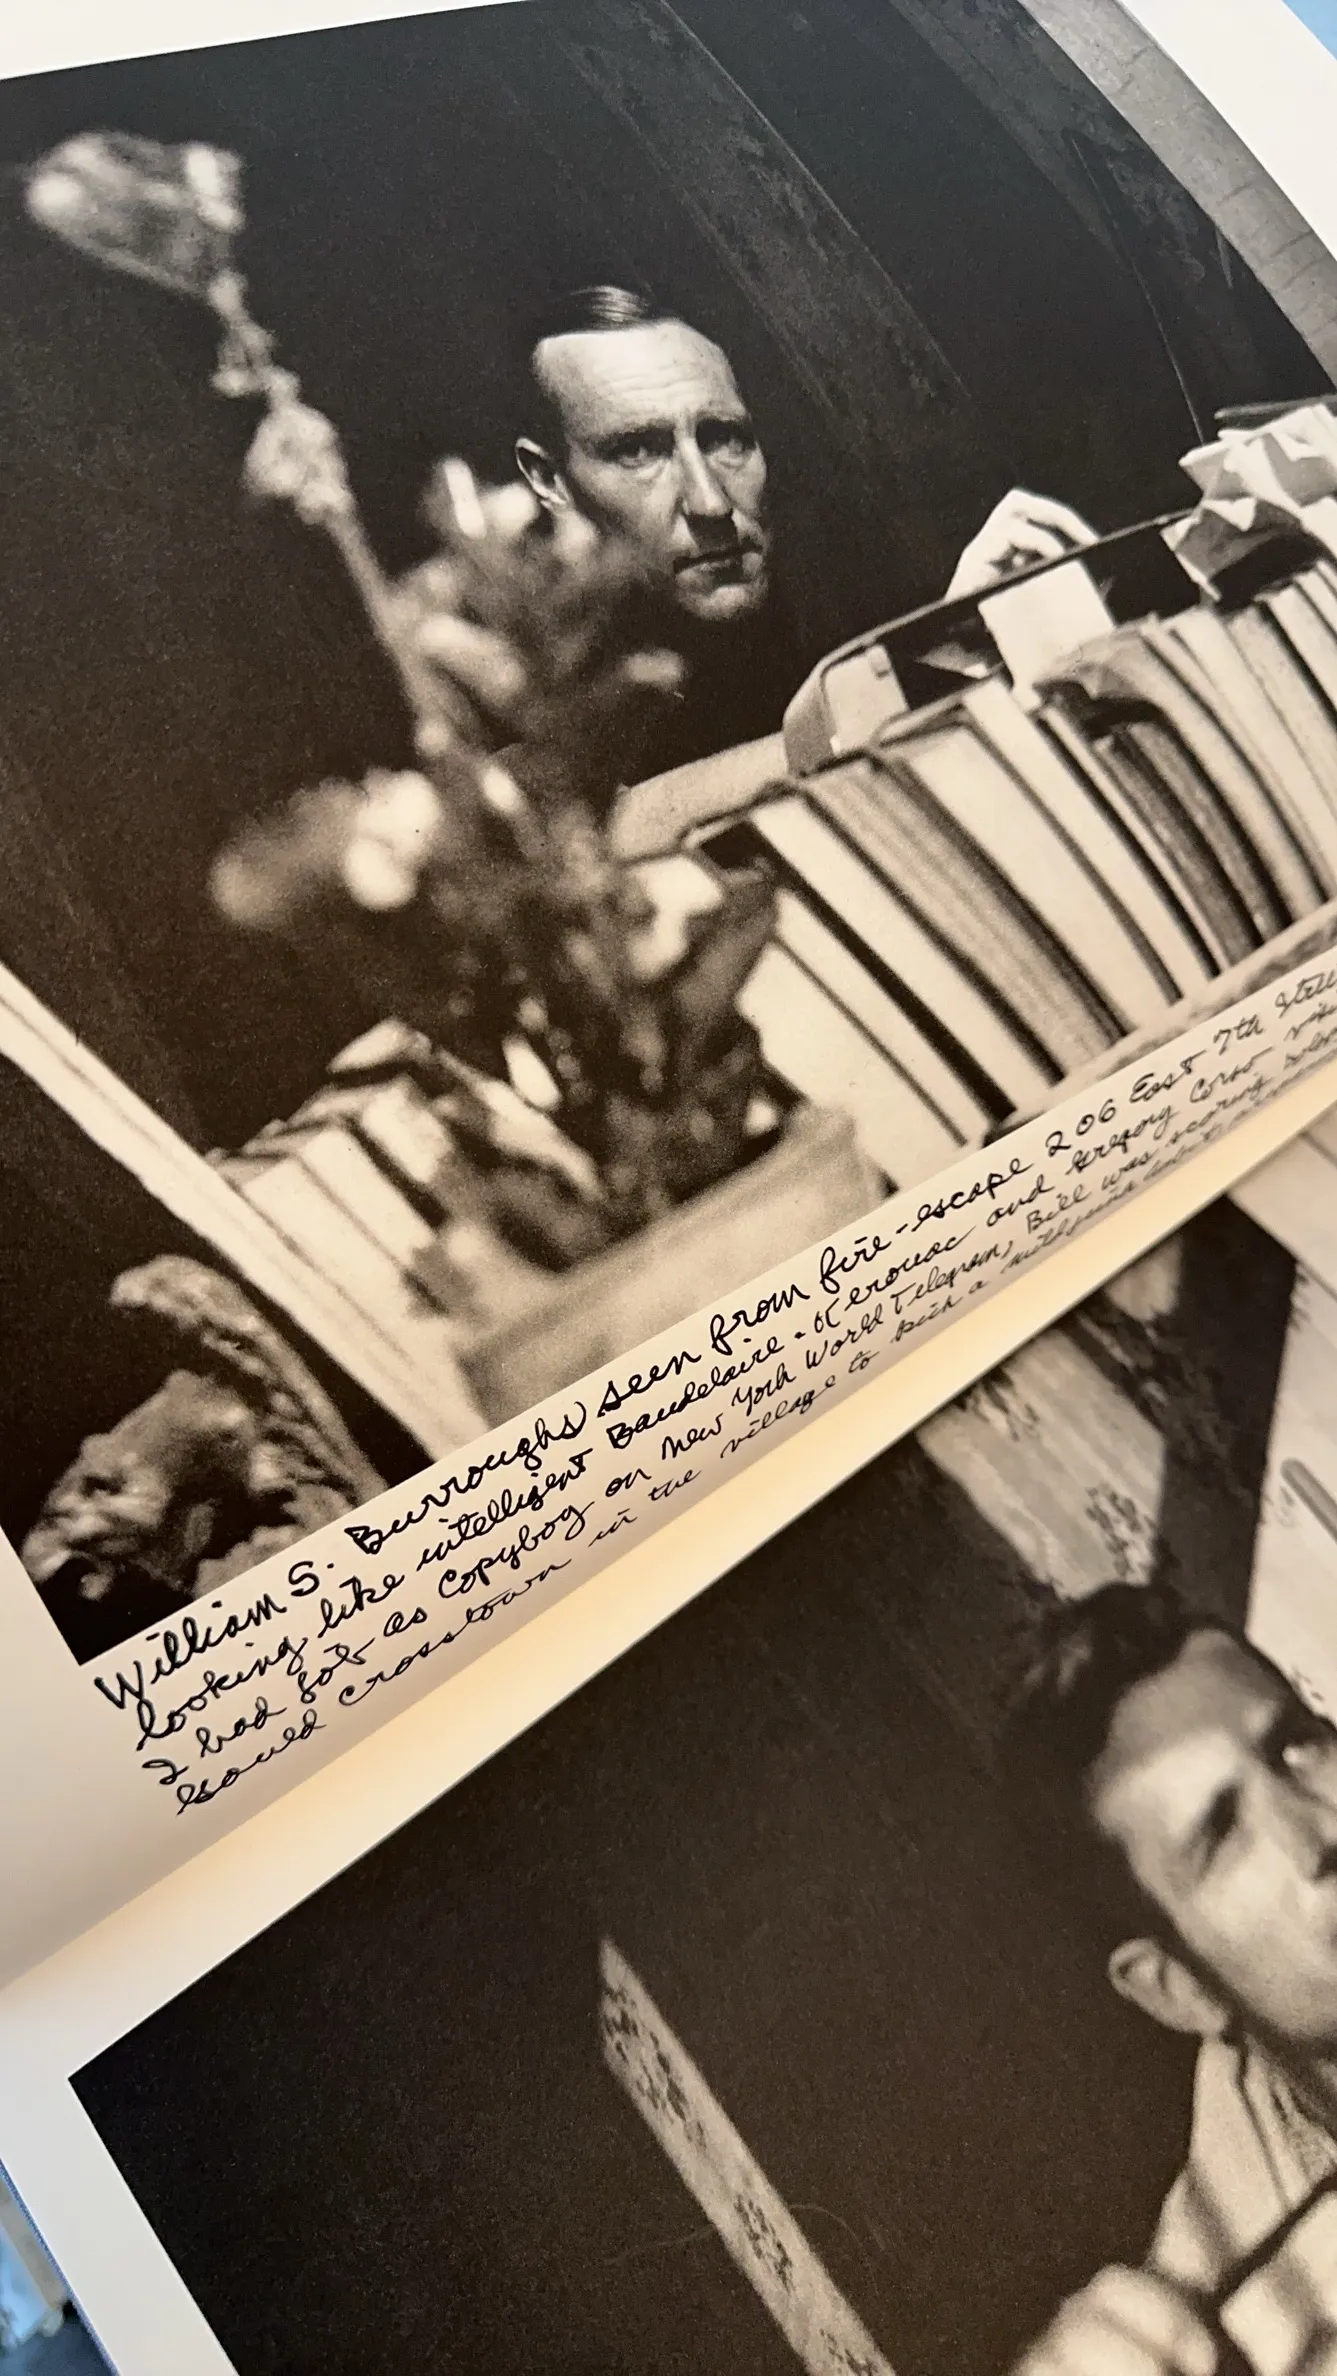 William S. Burroughs seen from fire-escape 206 East 7th
looking like intelligent Baudelaire - Kerouac and Gregory Corso
I had job as Copyboy on New York World Telegram, Bill was scoring
would crosstown in the village to kick a mild